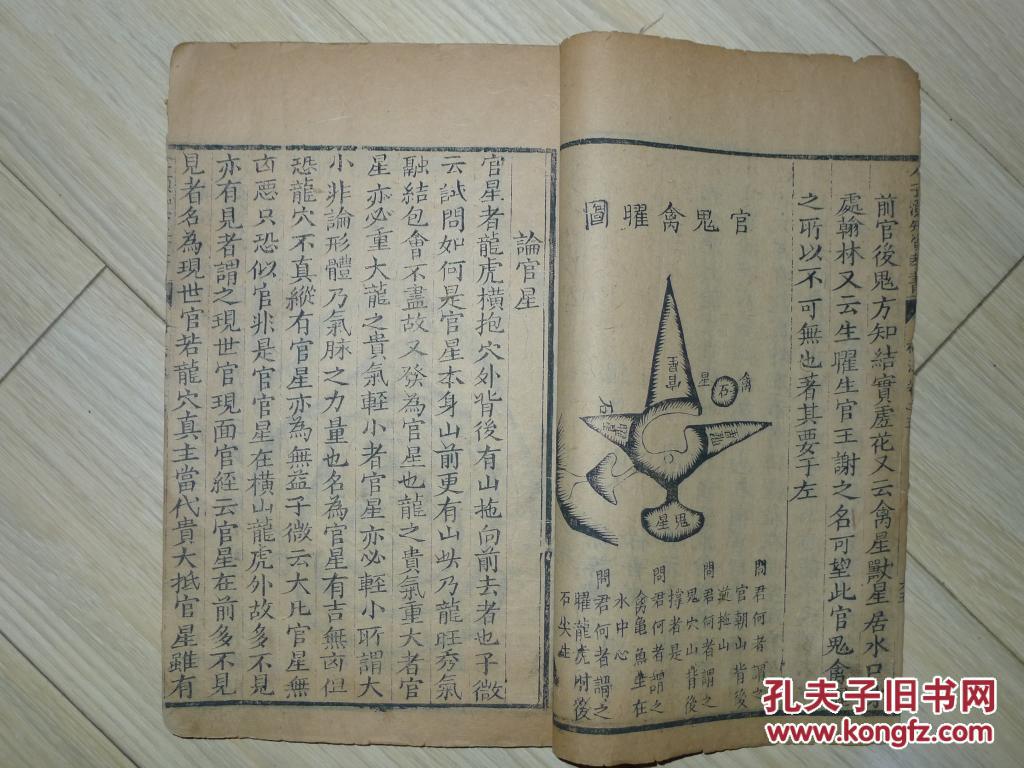 前官後鬼方知結實虛花又云禽星獸星居水口
處翰林又云生曜生官王謝之名可望此官鬼禽
之所以不可無也著其要于左
官鬼禽曜圖
官星
禽
星
石
曜星
石
鬼星
問君何者謂之
官朝山背後
逆拖山
問君何者謂之
鬼穴山背後
撑者是
問君何者謂之
禽龜魚生在
水中心
問君何者謂之
曜龍虎肘後
石尖生
論官星
官星者龍虎橫抱穴外背後有山拖向前去者也子微
云試問如何是官星本身山前更有山此乃龍旺秀氣
融結包會不盡故又發為官星也龍之貴氣重大者官
星亦必重大龍之貴氣輕小者官星亦必輕小所謂大
小非論形體乃氣脉之力量也名為官星有吉無凶但
恐龍穴不真縱有官星亦為無益子微云大凡官星無
凶惡只恐似官非是官官星在橫山龍虎外故多不見
亦有見者謂之現世官現面官經云官星在前多不見
見者名為現世官若龍穴真主當代貴大抵官星雖有
孔夫子旧书网
www.kongfz.com